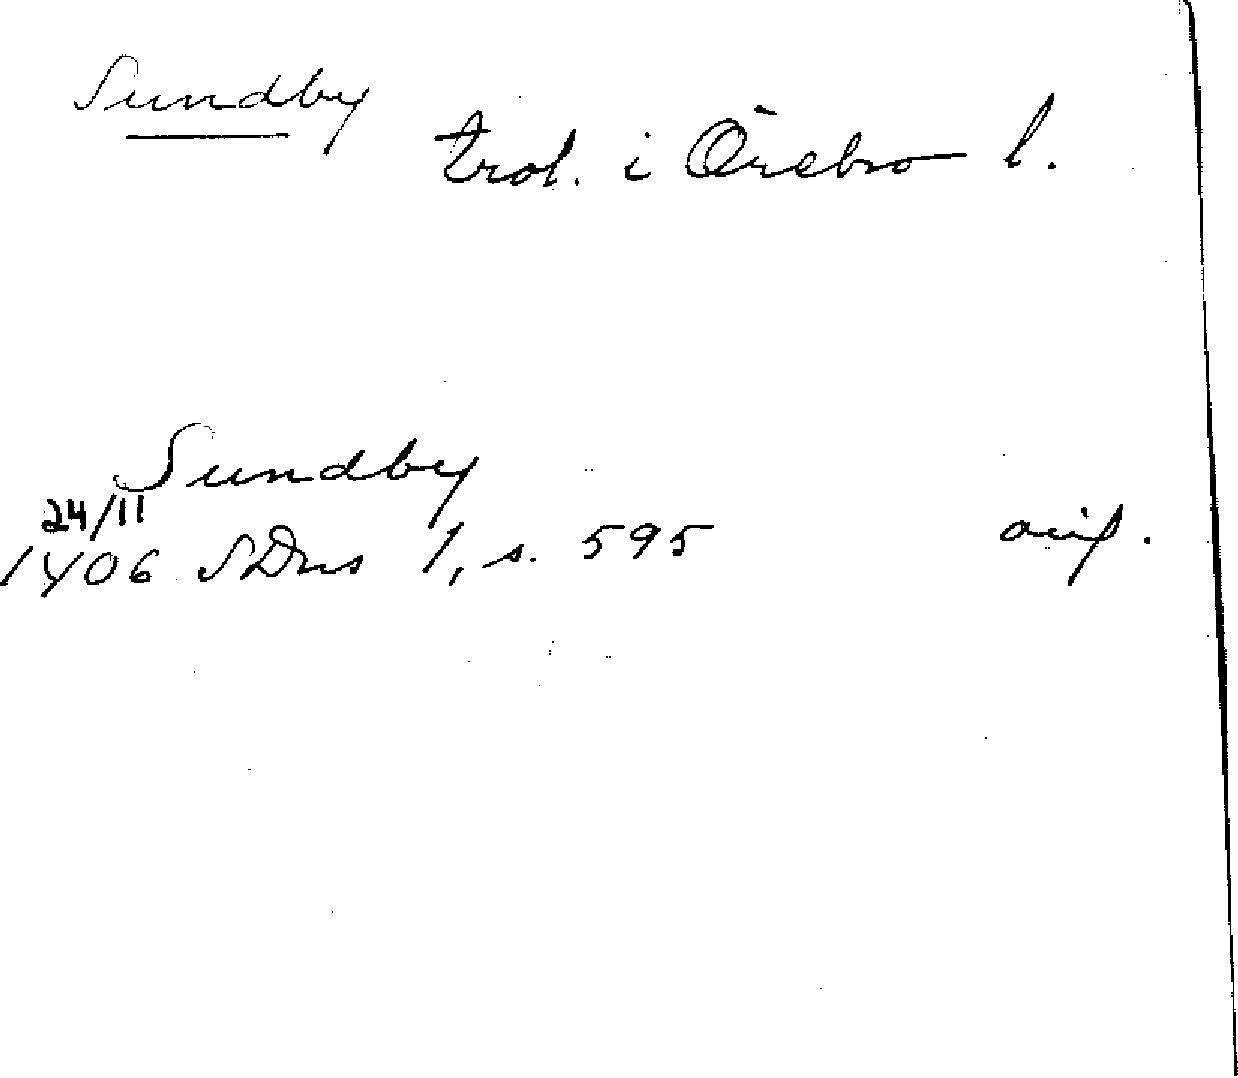 Sundby
trol. i Örebro l.
Sundby
24/11
1406 SDns 1, s. 595 avsk.